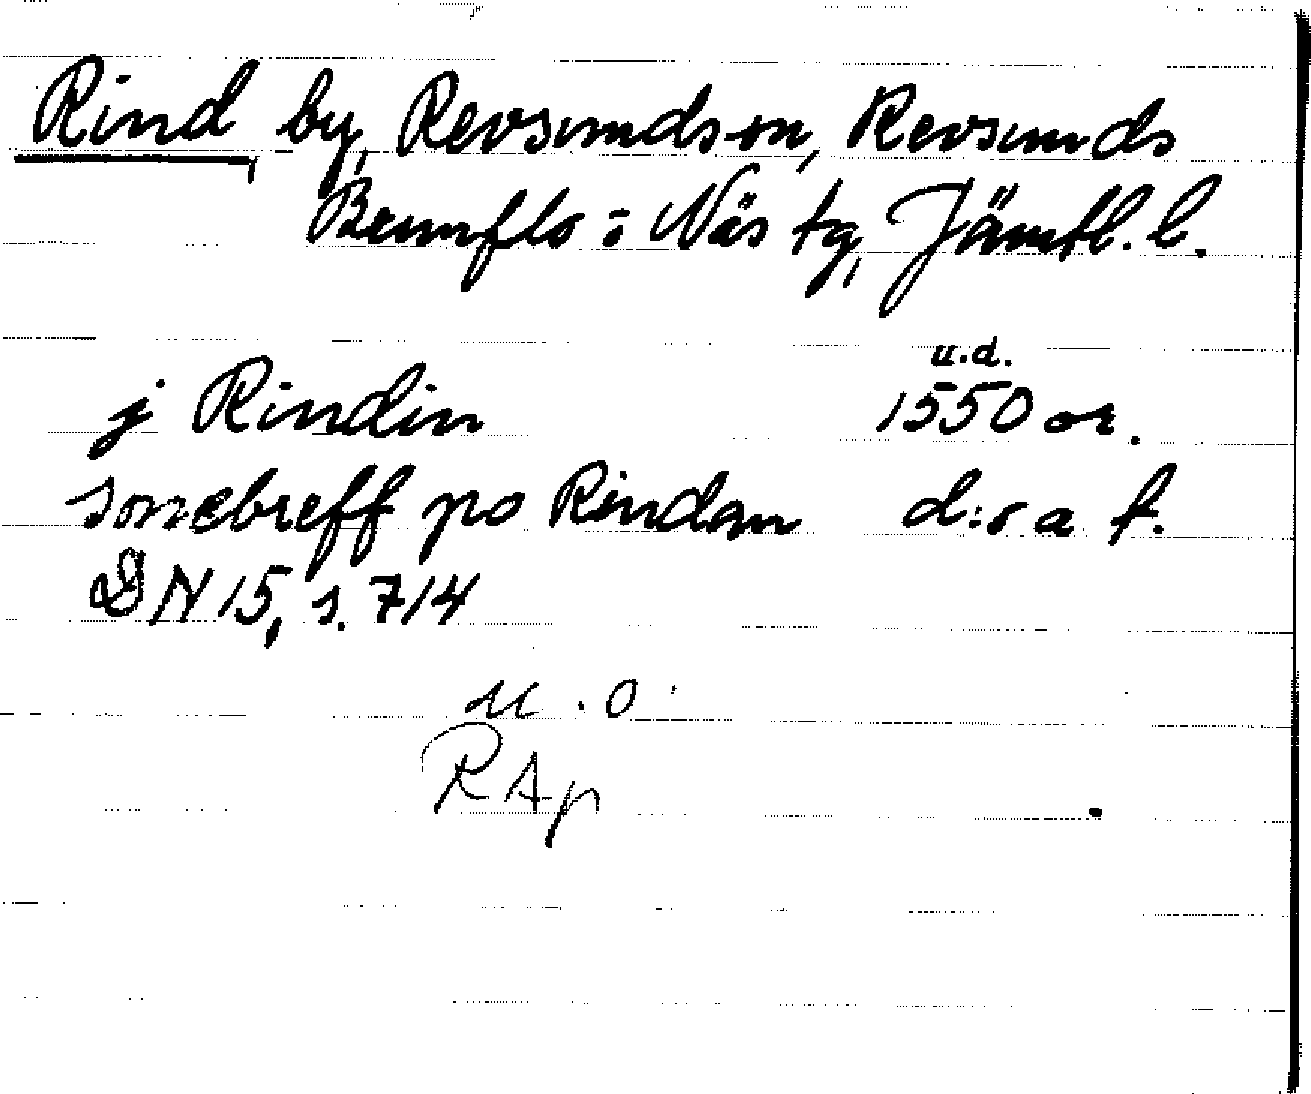 Rind, by, Revsunds sn, Revsunds
Brunflo o Näs tg, Jämtl. l.
u.d.
j Rindin 1550 or.
sonebreff po Rindan d:o a f.
DN 15, s. 714
U. O.
RAp